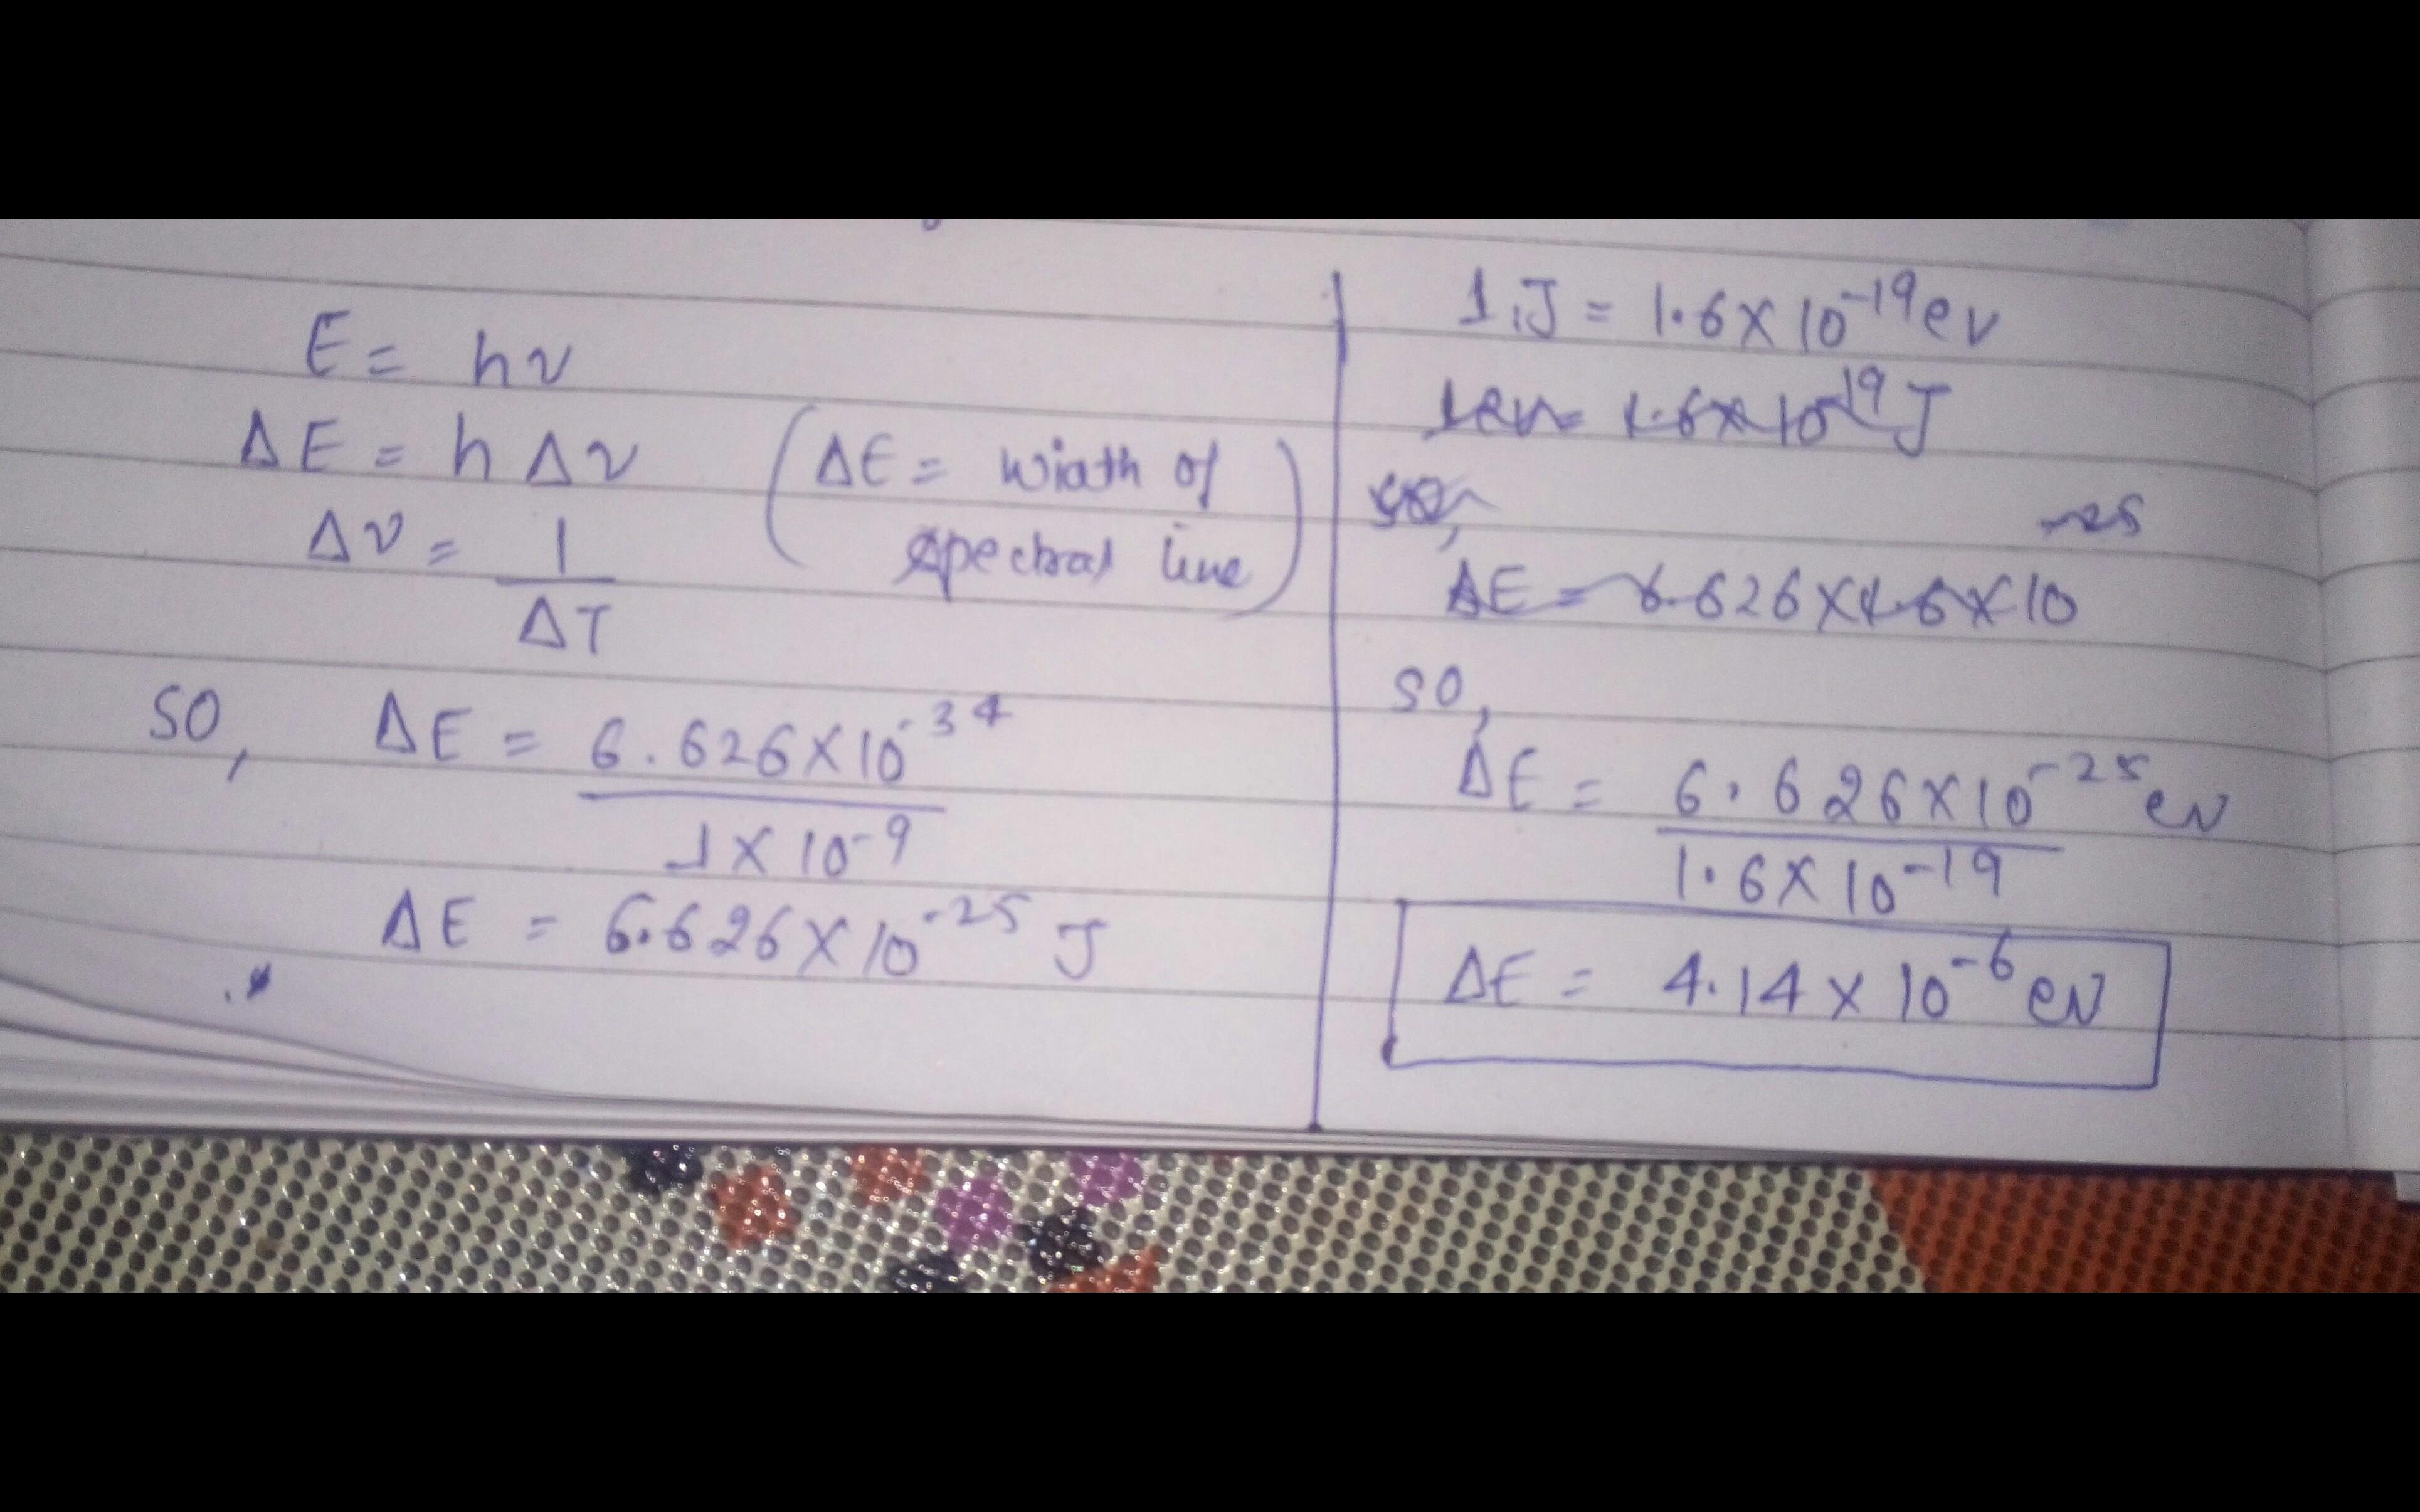 E = hν
ΔE = hΔν (ΔE = width of
spectral line)
Δν = 1
ΔT
so, ΔE = 6.626×10⁻³⁴
1×10⁻⁹
ΔE = 6.626×10⁻²⁵ J
1 J = 1.6×10⁻¹⁹ ev
1ev = 1.6×10⁻¹⁹ J
so,
-25
ΔE = 6.626×1.6×10
so,
ΔE = 6.626×10⁻²⁵ ev
1.6×10⁻¹⁹
ΔE = 4.14×10⁻⁶ ev